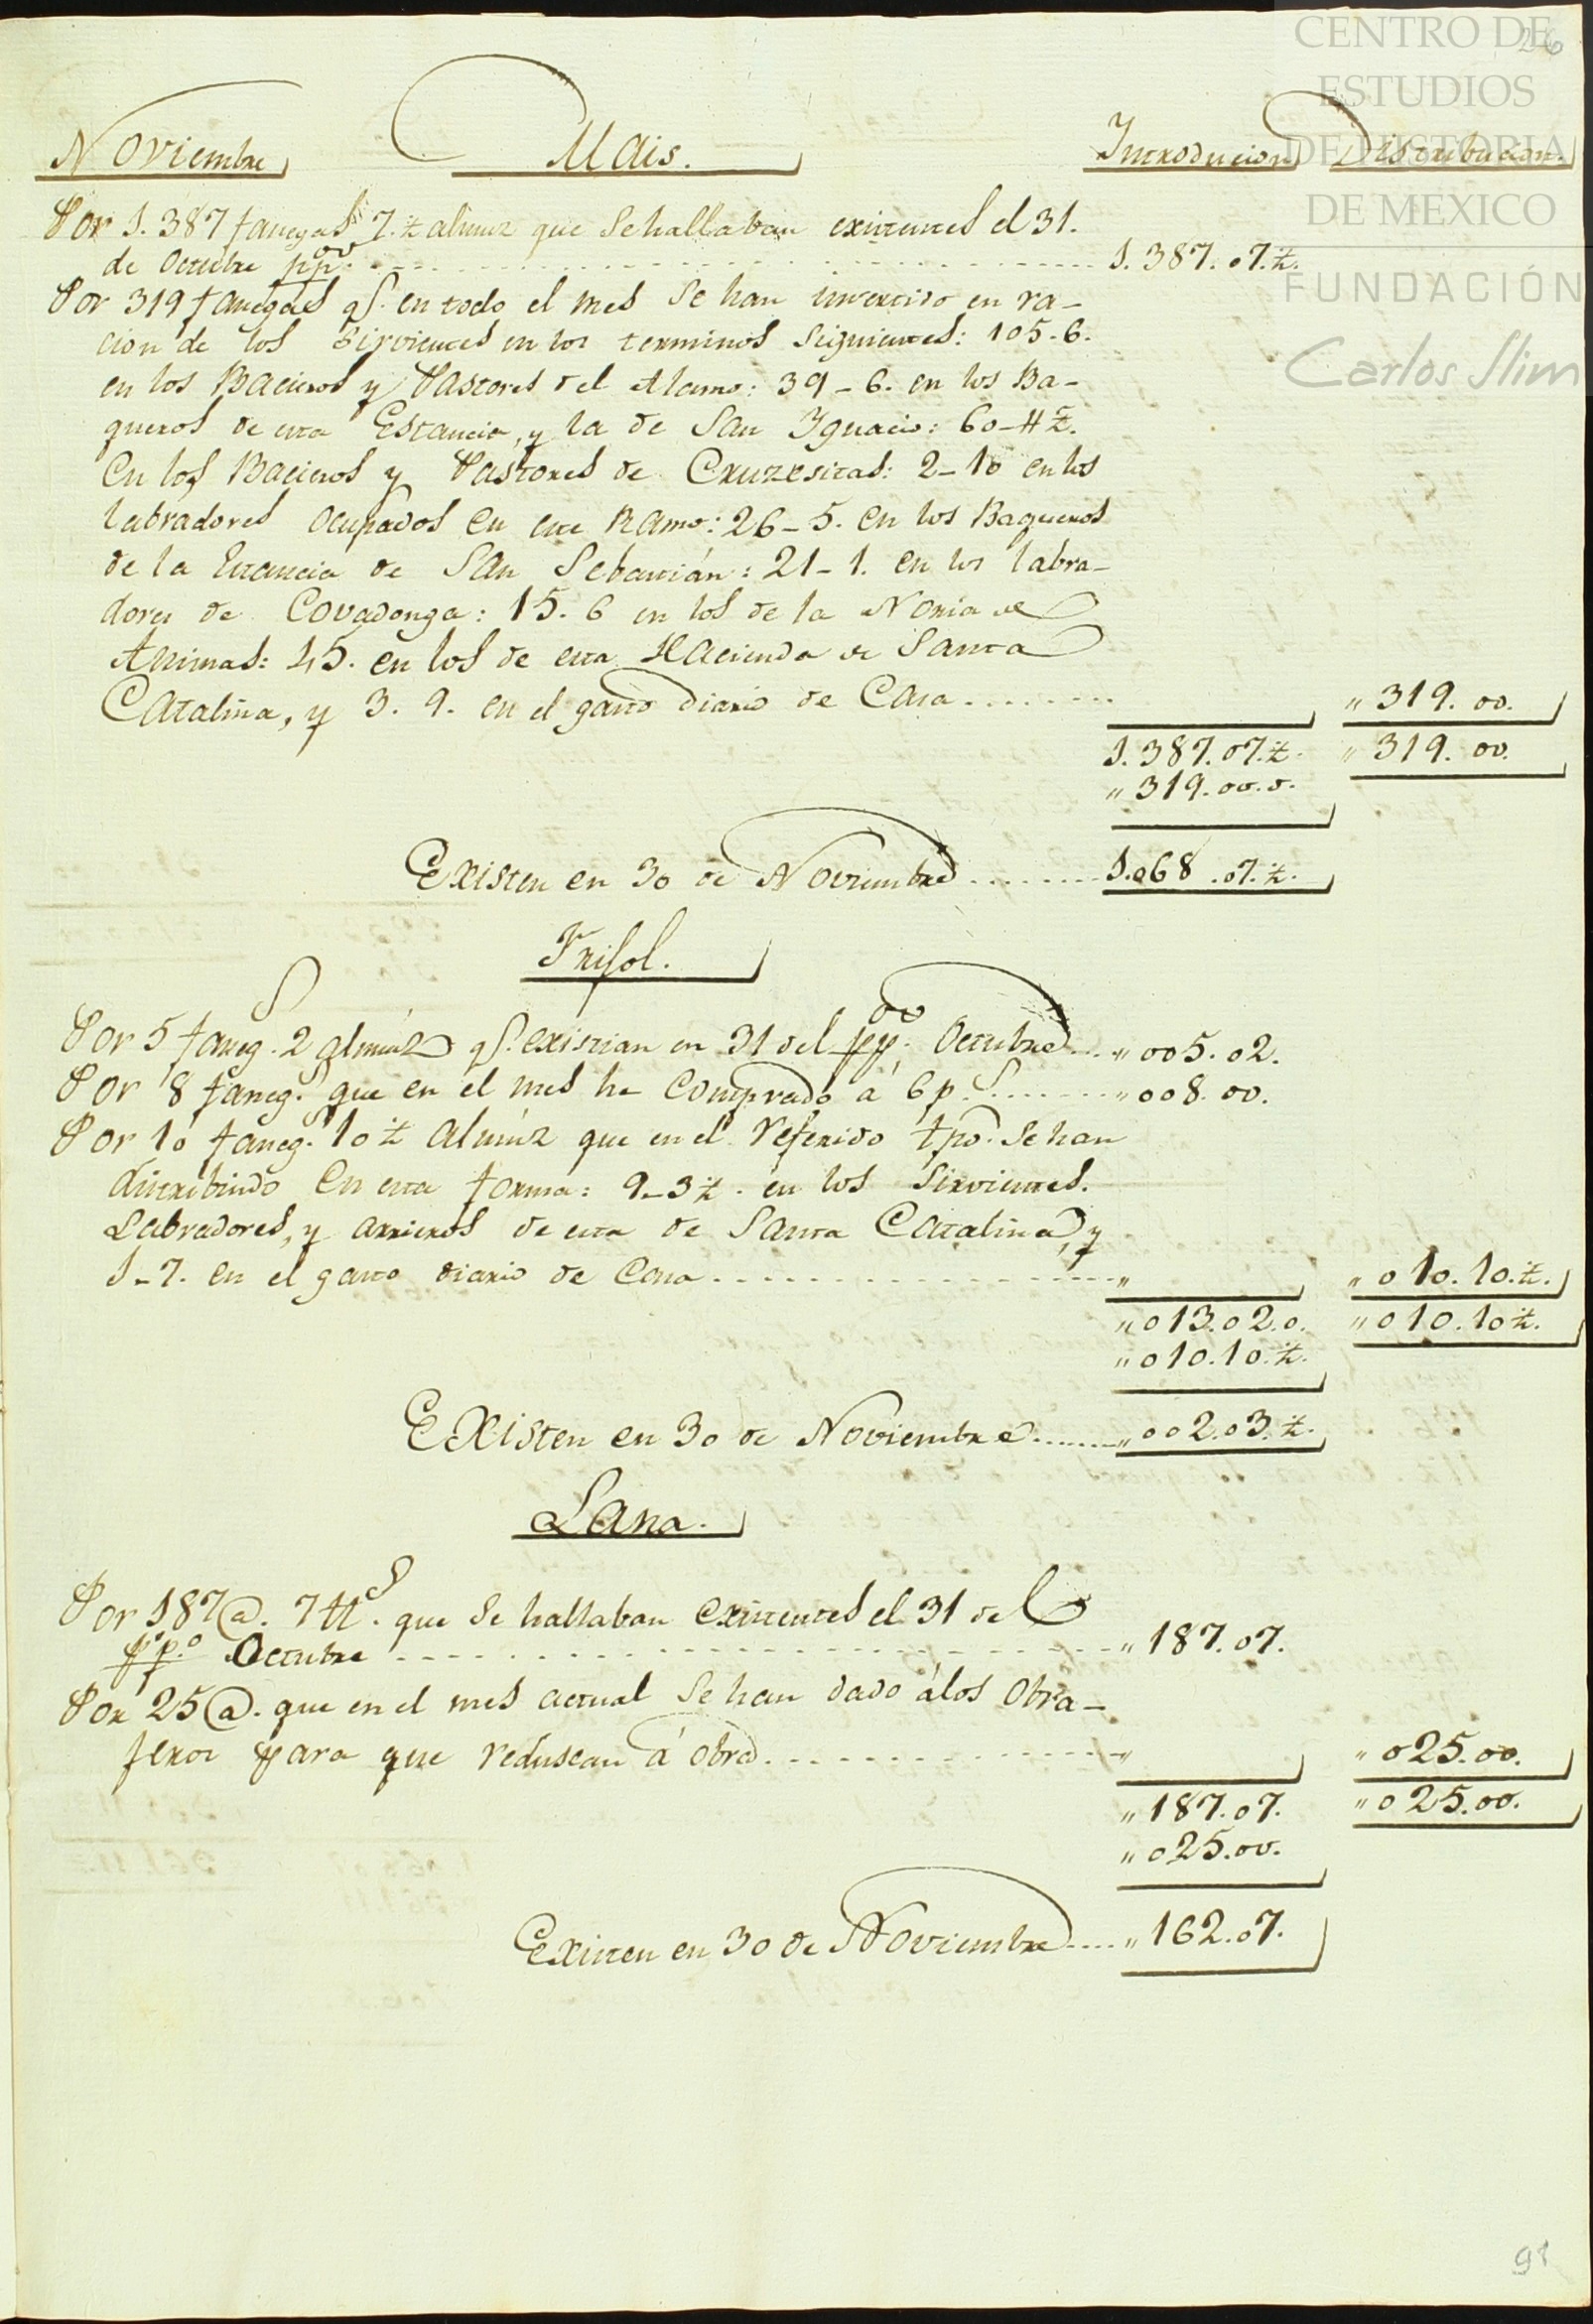 CENTRO DE
ESTUDIOS
DE HISTORIA
DE MEXICO
FUNDACIÓN
Carlos Slim
26
Noviembre Mais. Introducion Distribucion.
Por 1.387 fanegas 7.½ almuz que se hallaban existentes el 31.
de Octubre ppdo. 1.387.07.½.
Por 319 fanegas qe. en todo el mes se han invertido en ra-
cion de los Sirvientes en los terminos siguientes: 105-6.
en los Bacieros y Pastores del Alamo: 39-6. en los Ba-
queros de esta Estancia, y la de San Ygnacio: 60-4½.
en los Bacieros y Pastores de Cruzesitas: 2-10 en los
labradores ocupados en este Ramo: 26-5. en los Baqueros
de la Estancia de San Sebastián: 21-1. en los labra-
dores de Covadonga: 15.6 en los de la Noria de
Animas: 45. en los de esta Hacienda de Santa
Catalina, y 3.9. en el gasto diario de Casa " 319.00.
1.387.07.½. " 319.00.
" 319.00.0.
Existen en 30 de Noviembre 1.068.07.½.
Frisol.
Por 5 faneg.s 2 almuz qe. existian en 31 del ppdo. Octubre " 005.02.
Por 8 faneg.s que en el mes he comprado á 6 p.s " 008.00.
Por 10 faneg.s 10½ almuz que en el referido tpo. se han
distribuido en esta forma: 9-3½. en los Sirvientes.
Labradores, y arrieros de esta de Santa Catalina, y
1-7. en el gasto diario de Casa " " 010.10.½.
" 013.02.0. " 010.10½.
" 010.10.½.
Existen en 30 de Noviembre " 002.03.½.
Lana.
Por 187@. 7 lls. que se hallaban existentes el 31 del
pp.o Octubre " 187.07.
Por 25@. que en el mes actual se han dado á los Obra-
jeros para que reduscan á obra. " " 025.00.
" 187.07. " 025.00.
" 025.00.
Existen en 30 de Noviembre " 162.07.
91